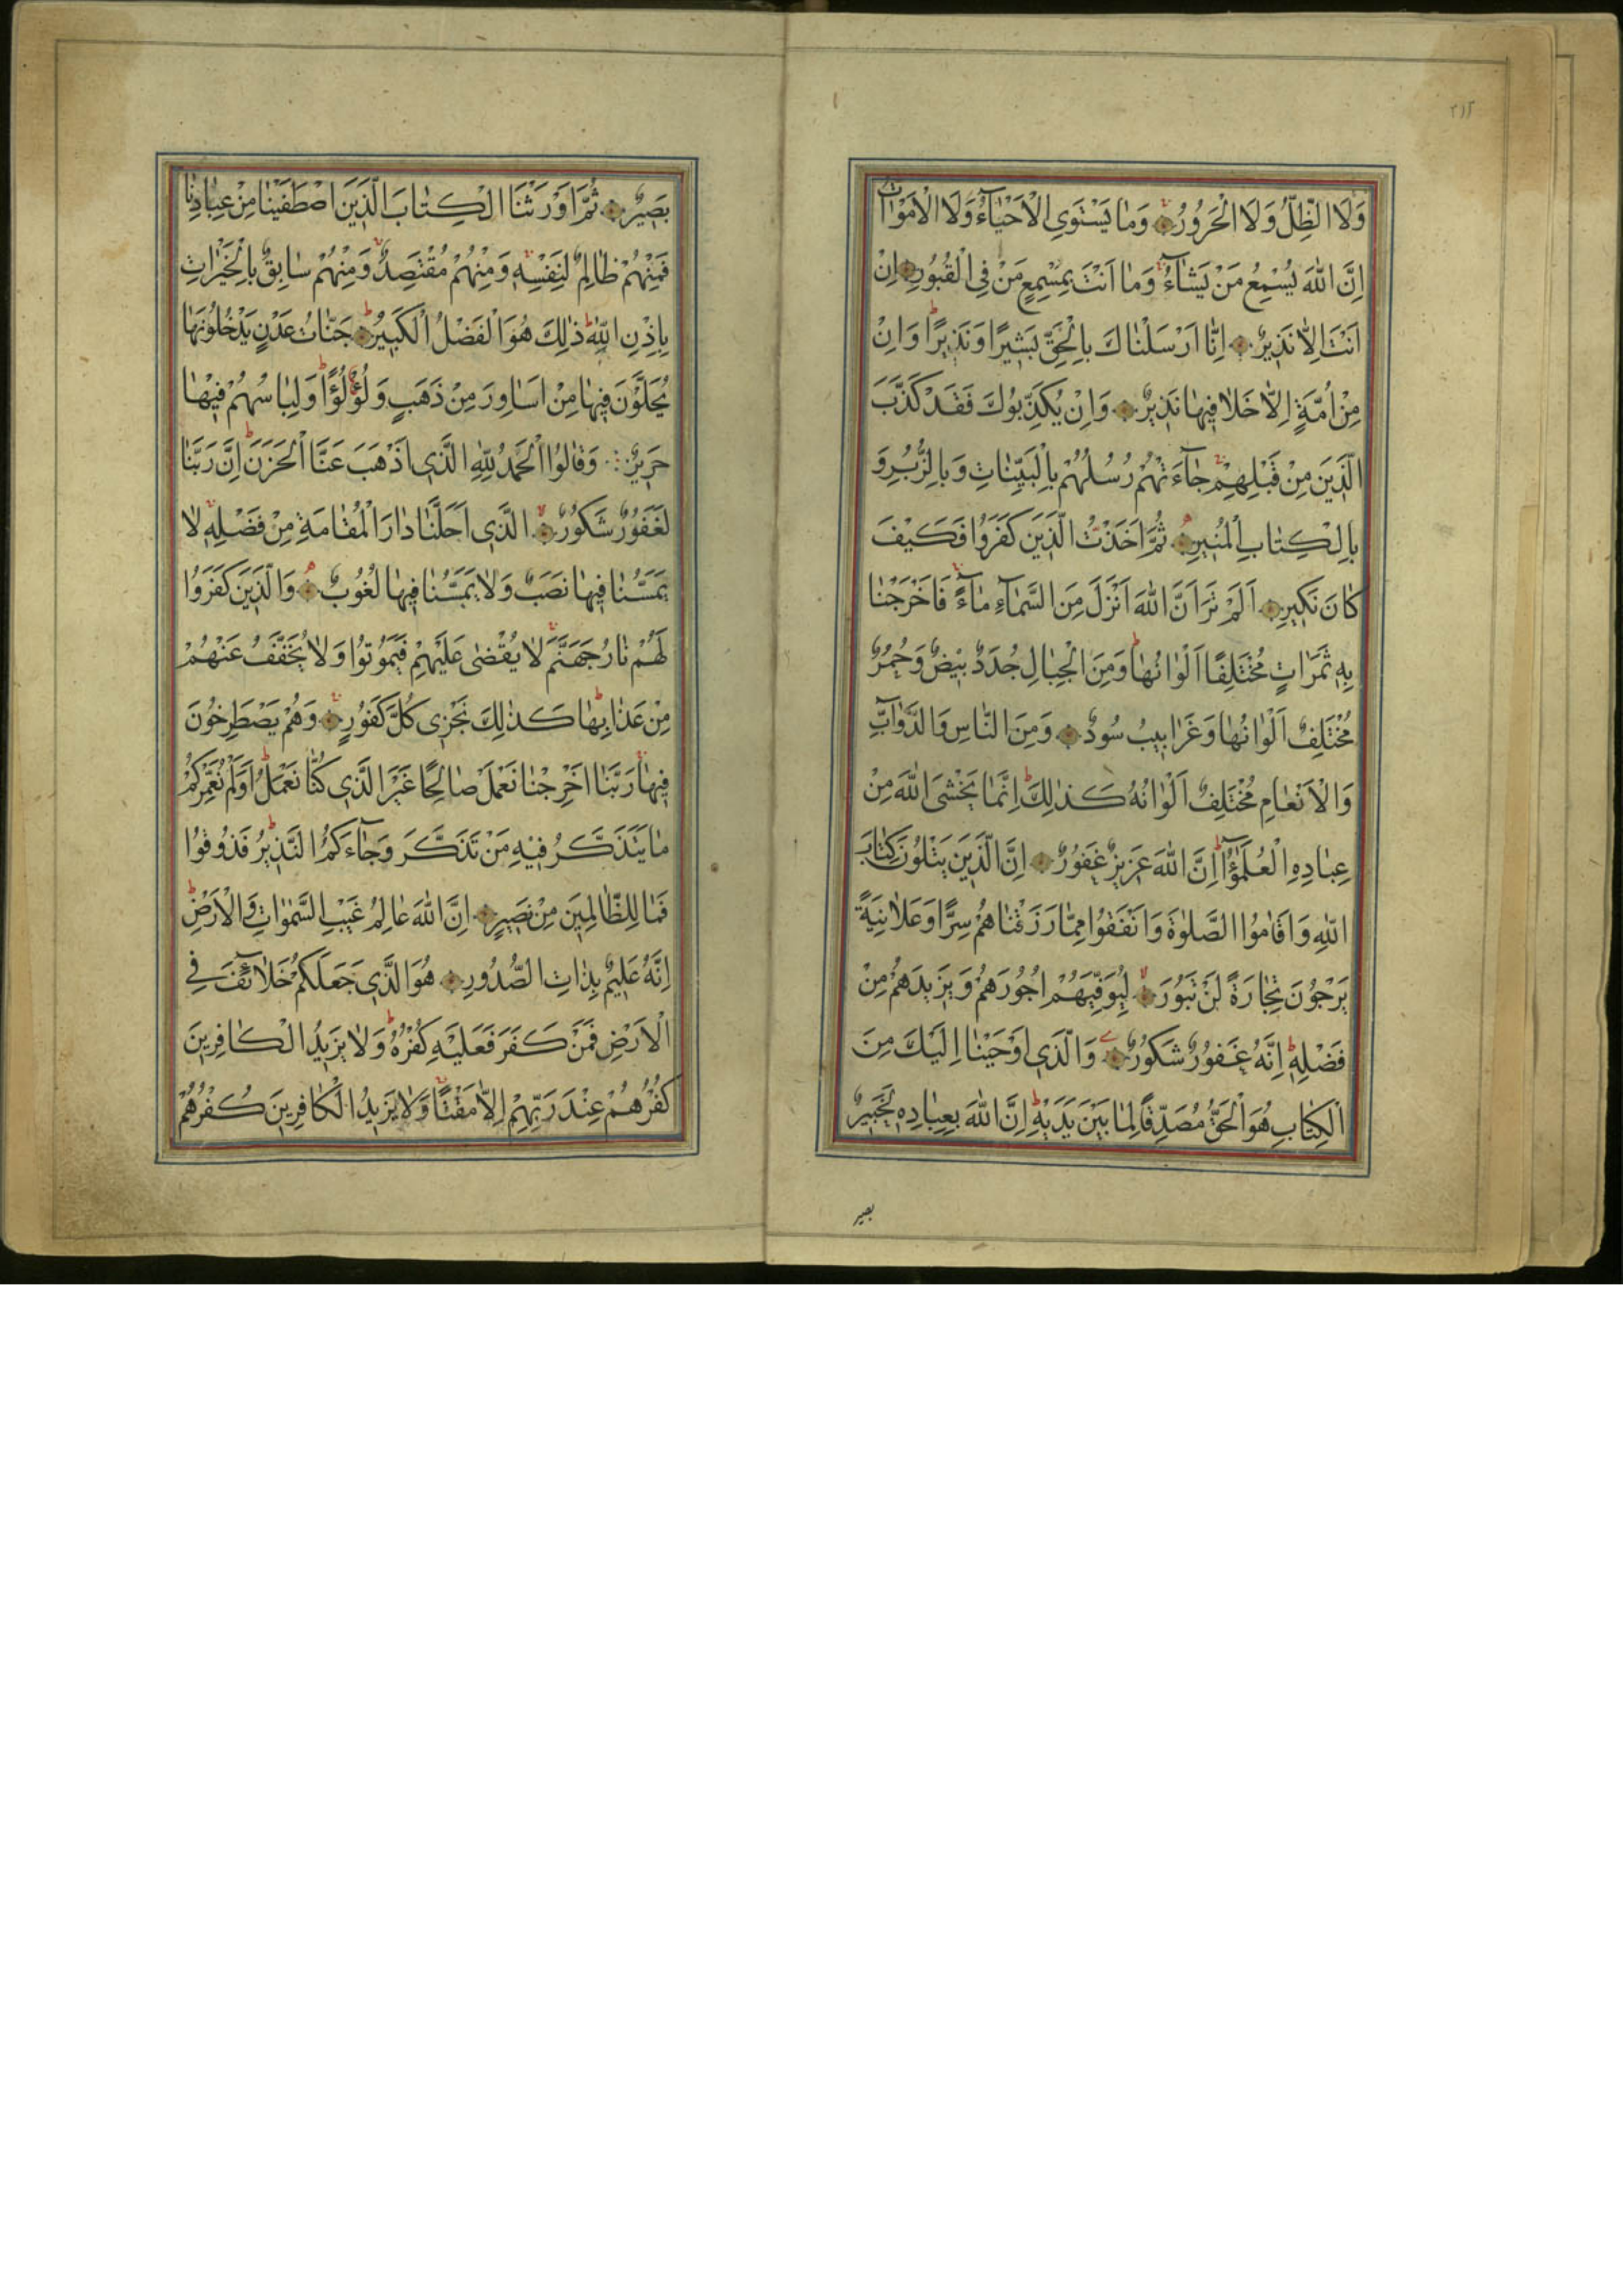 ٢١٢
وَلَا الظِّلُّ وَلَا الْحَرُورُ وَمَا يَسْتَوِي الْاَحْيَآءُ وَلَا الْاَمْوَاتُ
اِنَّ اللّٰهَ يُسْمِعُ مَنْ يَشَآءُ وَمَا اَنْتَ بِمُسْمِعٍ مَنْ فِي الْقُبُورِ اِنْ
اَنْتَ اِلَّا نَذِيرٌ اِنَّا اَرْسَلْنَاكَ بِالْحَقِّ بَشِيرًا وَنَذِيرًا وَاِنْ
مِنْ اُمَّةٍ اِلَّا خَلَا فِيهَا نَذِيرٌ وَاِنْ يُكَذِّبُوكَ فَقَدْ كَذَّبَ
الَّذِينَ مِنْ قَبْلِهِمْ جَآءَتْهُمْ رُسُلُهُمْ بِالْبَيِّنَاتِ وَبِالزُّبُرِ وَ
بِالْكِتَابِ الْمُنِيرِ ثُمَّ اَخَذْتُ الَّذِينَ كَفَرُوا فَكَيْفَ
كَانَ نَكِيرِ اَلَمْ تَرَ اَنَّ اللّٰهَ اَنْزَلَ مِنَ السَّمَآءِ مَآءً فَاَخْرَجْنَا
بِهِ ثَمَرَاتٍ مُخْتَلِفًا اَلْوَانُهَا وَمِنَ الْجِبَالِ جُدَدٌ بِيضٌ وَحُمْرٌ
مُخْتَلِفٌ اَلْوَانُهَا وَغَرَابِيبُ سُودٌ وَمِنَ النَّاسِ وَالدَّوَآبِّ
وَالْاَنْعَامِ مُخْتَلِفٌ اَلْوَانُهُ كَذٰلِكَ اِنَّمَا يَخْشَى اللّٰهَ مِنْ
عِبَادِهِ الْعُلَمٰٓؤُا اِنَّ اللّٰهَ عَزِيزٌ غَفُورٌ اِنَّ الَّذِينَ يَتْلُونَ كِتَابَ
اللّٰهِ وَاَقَامُوا الصَّلٰوةَ وَاَنْفَقُوا مِمَّا رَزَقْنَاهُمْ سِرًّا وَعَلَانِيَةً
يَرْجُونَ تِجَارَةً لَنْ تَبُورَ لِيُوَفِّيَهُمْ اُجُورَهُمْ وَيَزِيدَهُمْ مِنْ
فَضْلِهِ اِنَّهُ غَفُورٌ شَكُورٌ وَالَّذِي اَوْحَيْنَا اِلَيْكَ مِنَ
الْكِتَابِ هُوَ الْحَقُّ مُصَدِّقًا لِمَا بَيْنَ يَدَيْهِ اِنَّ اللّٰهَ بِعِبَادِهِ لَخَبِيرٌ
بصير
بَصِيرٌ ثُمَّ اَوْرَثْنَا الْكِتَابَ الَّذِينَ اصْطَفَيْنَا مِنْ عِبَادِنَا
فَمِنْهُمْ ظَالِمٌ لِنَفْسِهِ وَمِنْهُمْ مُقْتَصِدٌ وَمِنْهُمْ سَابِقٌ بِالْخَيْرَاتِ
بِاِذْنِ اللّٰهِ ذٰلِكَ هُوَ الْفَضْلُ الْكَبِيرُ جَنَّاتُ عَدْنٍ يَدْخُلُونَهَا
يُحَلَّوْنَ فِيهَا مِنْ اَسَاوِرَ مِنْ ذَهَبٍ وَلُؤْلُؤًا وَلِبَاسُهُمْ فِيهَا
حَرِيرٌ وَقَالُوا الْحَمْدُ لِلّٰهِ الَّذِي اَذْهَبَ عَنَّا الْحَزَنَ اِنَّ رَبَّنَا
لَغَفُورٌ شَكُورٌ الَّذِي اَحَلَّنَا دَارَ الْمُقَامَةِ مِنْ فَضْلِهِ لَا
يَمَسُّنَا فِيهَا نَصَبٌ وَلَا يَمَسُّنَا فِيهَا لُغُوبٌ وَالَّذِينَ كَفَرُوا
لَهُمْ نَارُ جَهَنَّمَ لَا يُقْضٰى عَلَيْهِمْ فَيَمُوتُوا وَلَا يُخَفَّفُ عَنْهُمْ
مِنْ عَذَابِهَا كَذٰلِكَ نَجْزِي كُلَّ كَفُورٍ وَهُمْ يَصْطَرِخُونَ
فِيهَا رَبَّنَا اَخْرِجْنَا نَعْمَلْ صَالِحًا غَيْرَ الَّذِي كُنَّا نَعْمَلُ اَوَلَمْ نُعَمِّرْكُمْ
مَا يَتَذَكَّرُ فِيهِ مَنْ تَذَكَّرَ وَجَآءَكُمُ النَّذِيرُ فَذُوقُوا
فَمَا لِلظَّالِمِينَ مِنْ نَصِيرٍ اِنَّ اللّٰهَ عَالِمُ غَيْبِ السَّمٰوَاتِ وَالْاَرْضِ
اِنَّهُ عَلِيمٌ بِذَاتِ الصُّدُورِ هُوَ الَّذِي جَعَلَكُمْ خَلَآئِفَ فِي
الْاَرْضِ فَمَنْ كَفَرَ فَعَلَيْهِ كُفْرُهُ وَلَا يَزِيدُ الْكَافِرِينَ
كُفْرُهُمْ عِنْدَ رَبِّهِمْ اِلَّا مَقْتًا وَلَا يَزِيدُ الْكَافِرِينَ كُفْرُهُمْ